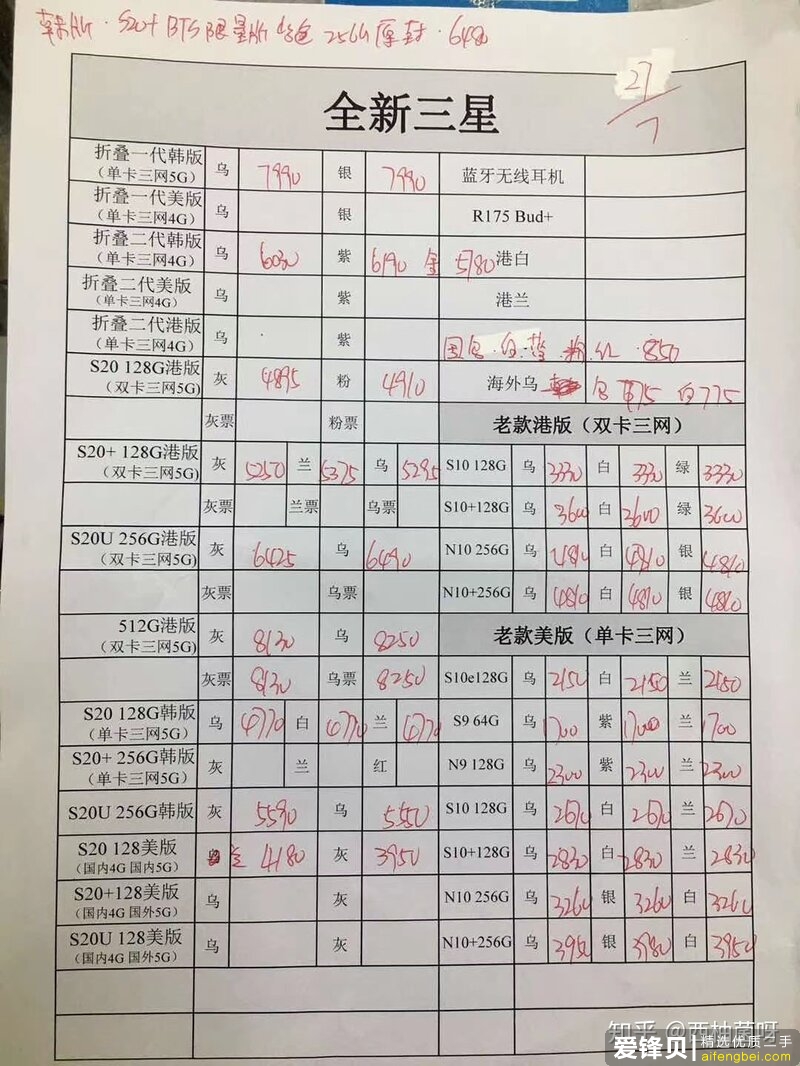 韩版·S20+ BTS限量版 紫色 256G 原封·6480
27/7
全新三星
折叠一代韩版 乌 7990 银 7990 蓝牙无线耳机
(单卡三网5G)
折叠一代美版 乌 银 R175 Bud+
(单卡三网4G)
折叠二代韩版 乌 6030 紫 6190 金 5780 港白
(单卡三网4G)
折叠二代美版 乌 紫 港兰
(单卡三网4G)
折叠二代港版 乌 紫 850
(单卡三网4G)
S20 128G港版 灰 4895 粉 4910 海外乌 白775
(双卡三网5G)
灰票 粉票 老款港版（双卡三网）
S20+ 128G港版 灰 5250 兰 5375 乌 5295 S10 128G 乌 3330 白 3330 绿 3330
(双卡三网5G)
灰票 兰票 乌票 S10+128G 乌 3600 白 3600 绿 3600
S20U 256G港版 灰 6425 乌 6490 N10 256G 乌 白 银
(双卡三网5G)
灰票 乌票 N10+256G 乌 4810 白 4810 银 4810
512G港版 灰 8130 乌 8250 老款美版（单卡三网）
(双卡三网5G)
灰票 8130 乌票 8250 S10e128G 乌 2150 白 2150 兰 2150
S20 128G韩版 乌 4770 白 4770 兰 4770 S9 64G 乌 1700 紫 1700 兰 1700
(单卡三网5G)
S20+ 256G韩版 灰 兰 红 N9 128G 乌 2300 紫 2300 兰 2300
(单卡三网5G)
S20U 256G韩版 灰 5590 乌 5550 S10 128G 乌 2670 白 2670 兰 2670
S20 128美版 兰 4180 灰 3950 S10+128G 乌 2830 白 2830 兰 2830
(国内4G 国内5G)
S20+128美版 乌 灰 N10 256G 乌 3260 银 3260 白 3260
(国内4G 国外5G)
S20U 128美版 乌 灰 N10+256G 乌 3950 银 3980 白 3950
(国内4G 国外5G)
知乎 @西柚茵呀
爱锋贝 精选优质二手
aifengbei.com